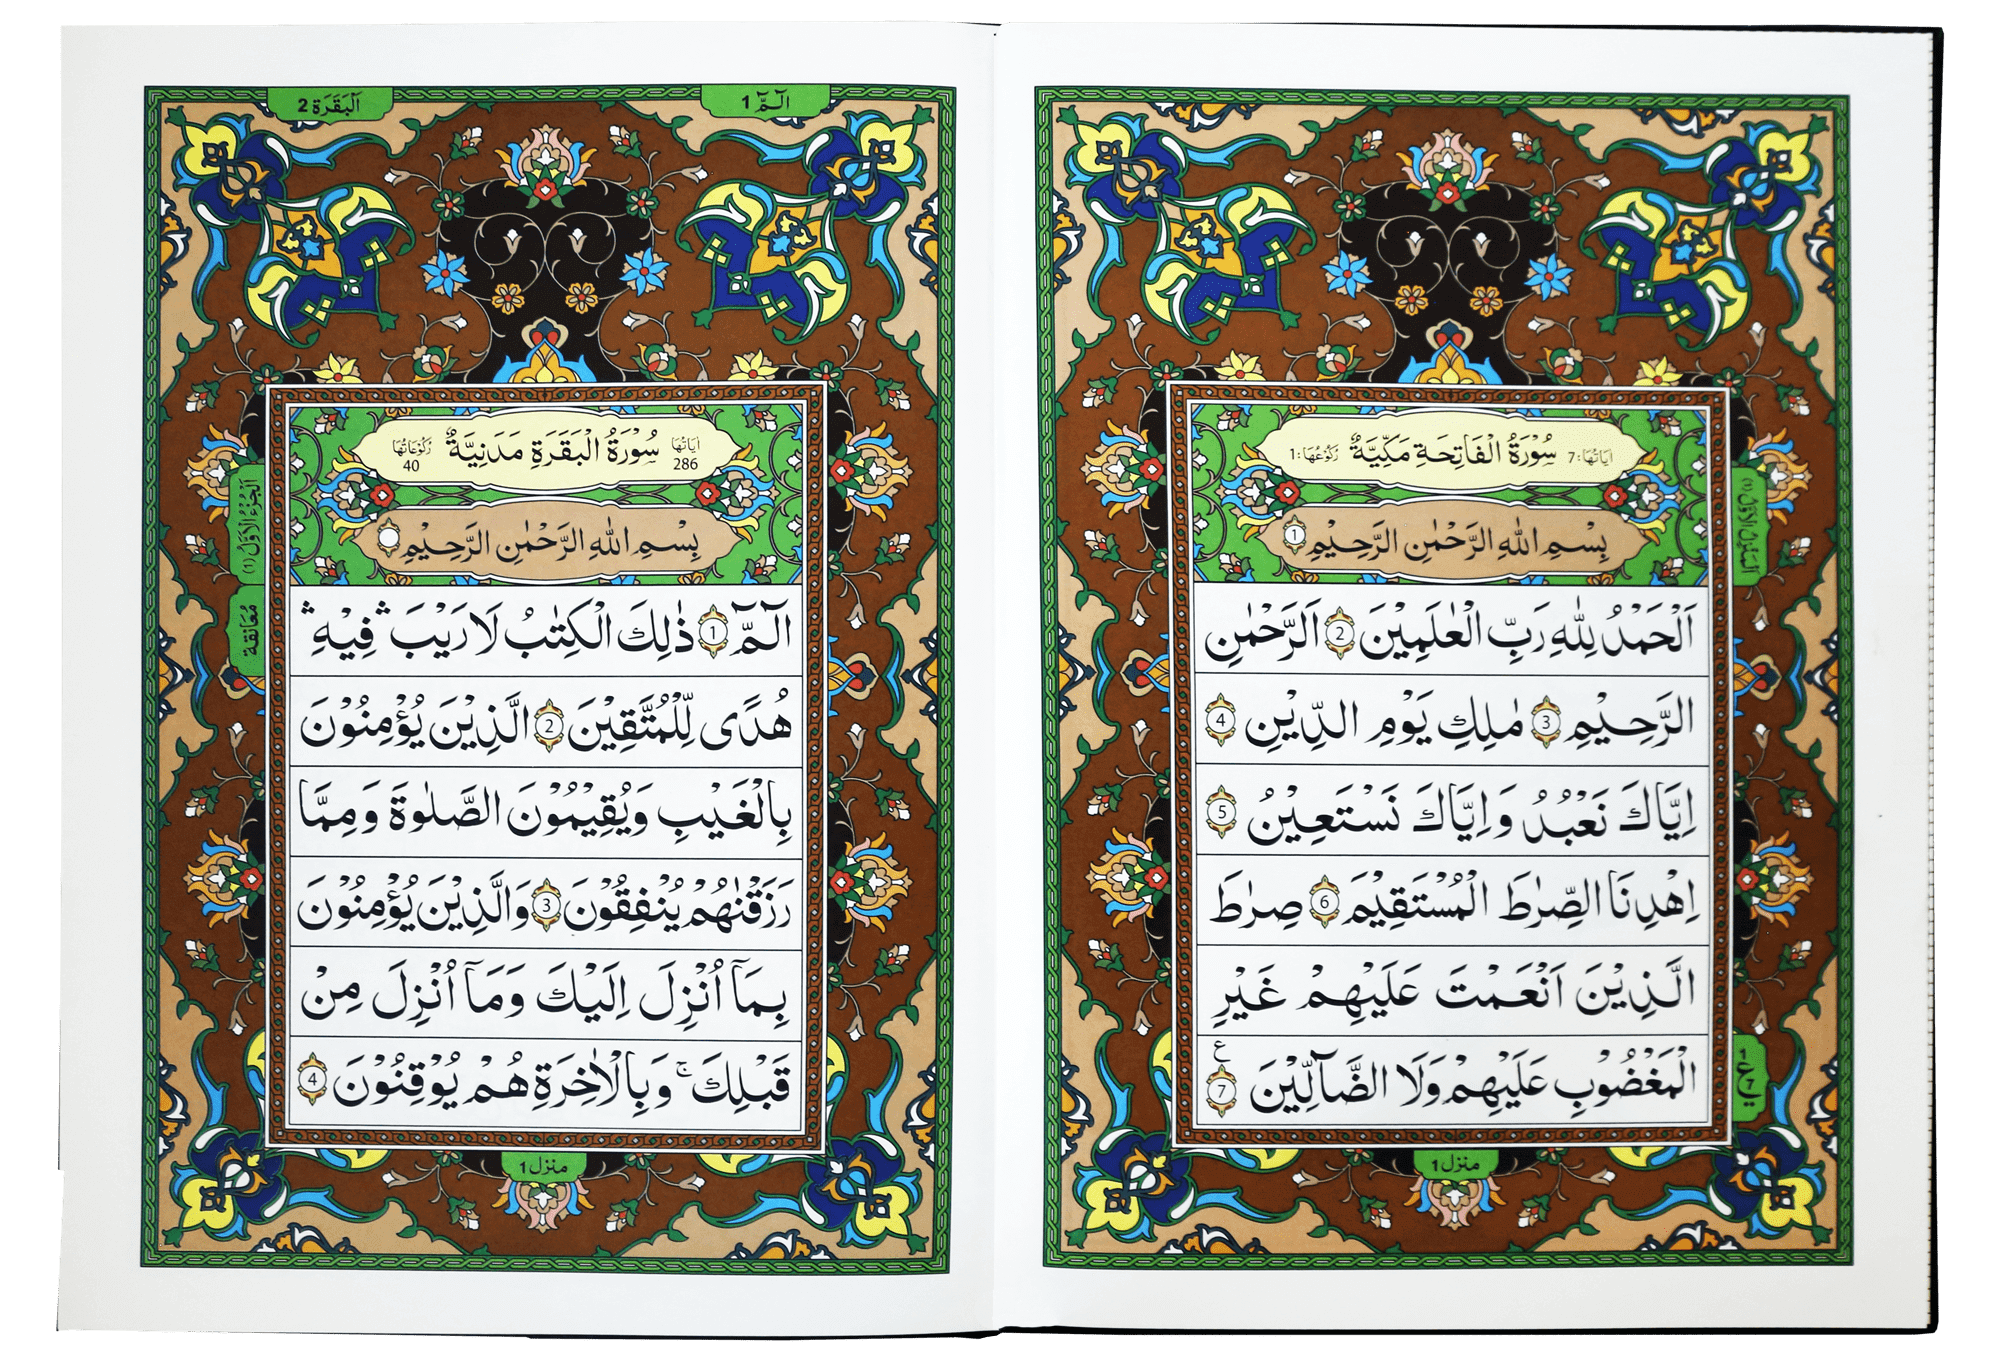 سُوْرَةُ الْفَاتِحَةِ مَكِّيَّةٌ
اٰيَاتُهَا: 7
رُكُوْعُهَا: 1
بِسْمِ اللّٰهِ الرَّحْمٰنِ الرَّحِيْمِ 1
اَلْحَمْدُ لِلّٰهِ رَبِّ الْعٰلَمِيْنَ 2 الرَّحْمٰنِ
الرَّحِيْمِ 3 مٰلِكِ يَوْمِ الدِّيْنِ 4
اِيَّاكَ نَعْبُدُ وَاِيَّاكَ نَسْتَعِيْنُ 5
اِهْدِنَا الصِّرٰطَ الْمُسْتَقِيْمَ 6 صِرٰطَ
الَّذِيْنَ اَنْعَمْتَ عَلَيْهِمْ غَيْرِ
الْمَغْضُوْبِ عَلَيْهِمْ وَلَا الضَّآلِّيْنَ 7 ع
1 ع 7
منزل 1
الٓمّٓ 1
اَلْبَقَرَة 2
سُوْرَةُ الْبَقَرَةِ مَدَنِيَّةٌ
اٰيَاتُهَا 286
رُكُوْعَاتُهَا 40
بِسْمِ اللّٰهِ الرَّحْمٰنِ الرَّحِيْمِ
الٓمّٓ 1 ذٰلِكَ الْكِتٰبُ لَا رَيْبَ ۛ فِيْهِ ۛ
هُدًى لِّلْمُتَّقِيْنَ 2 الَّذِيْنَ يُؤْمِنُوْنَ
بِالْغَيْبِ وَيُقِيْمُوْنَ الصَّلٰوةَ وَمِمَّا
رَزَقْنٰهُمْ يُنْفِقُوْنَ 3 وَالَّذِيْنَ يُؤْمِنُوْنَ
بِمَآ اُنْزِلَ اِلَيْكَ وَمَآ اُنْزِلَ مِنْ
قَبْلِكَ ۚ وَبِالْاٰخِرَةِ هُمْ يُوْقِنُوْنَ 4
اَلْجُزْءُ الْاَوَّلُ (1)
مُعَانقة
منزل 1